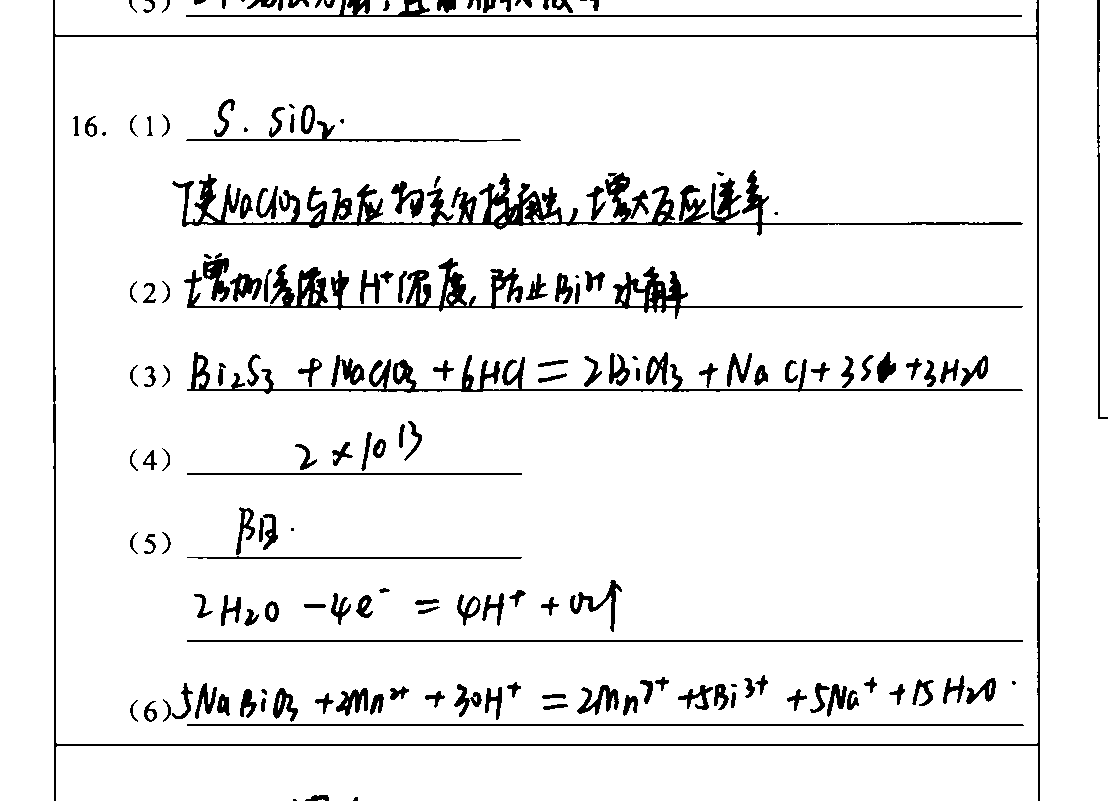 16. (1) S. SiO₂.
使NaClO₃与反应物充分接触,增大反应速率.
(2) 增加溶液中H⁺浓度,防止Bi³⁺水解
(3) Bi₂S₃ + NaClO₃ + 6HCl = 2BiCl₃ + NaCl + 3S + 3H₂O
(4) 2×10¹³
(5) 阳.
2H₂O - 4e⁻ = 4H⁺ + O₂↑
(6) 5NaBiO₃ + 2Mn²⁺ + 30H⁺ = 2Mn⁷⁺ + 5Bi³⁺ + 5Na⁺ + 15H₂O.